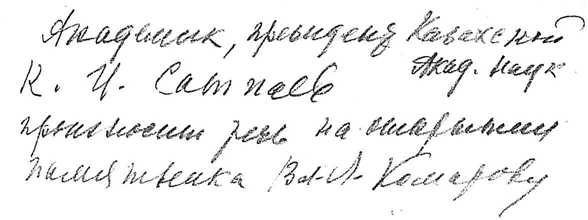 Академик, президент Казахской
Акад. наук
К. И. Сатпаев
произносит речь на открытии
памятника Вл. Л. Комарову